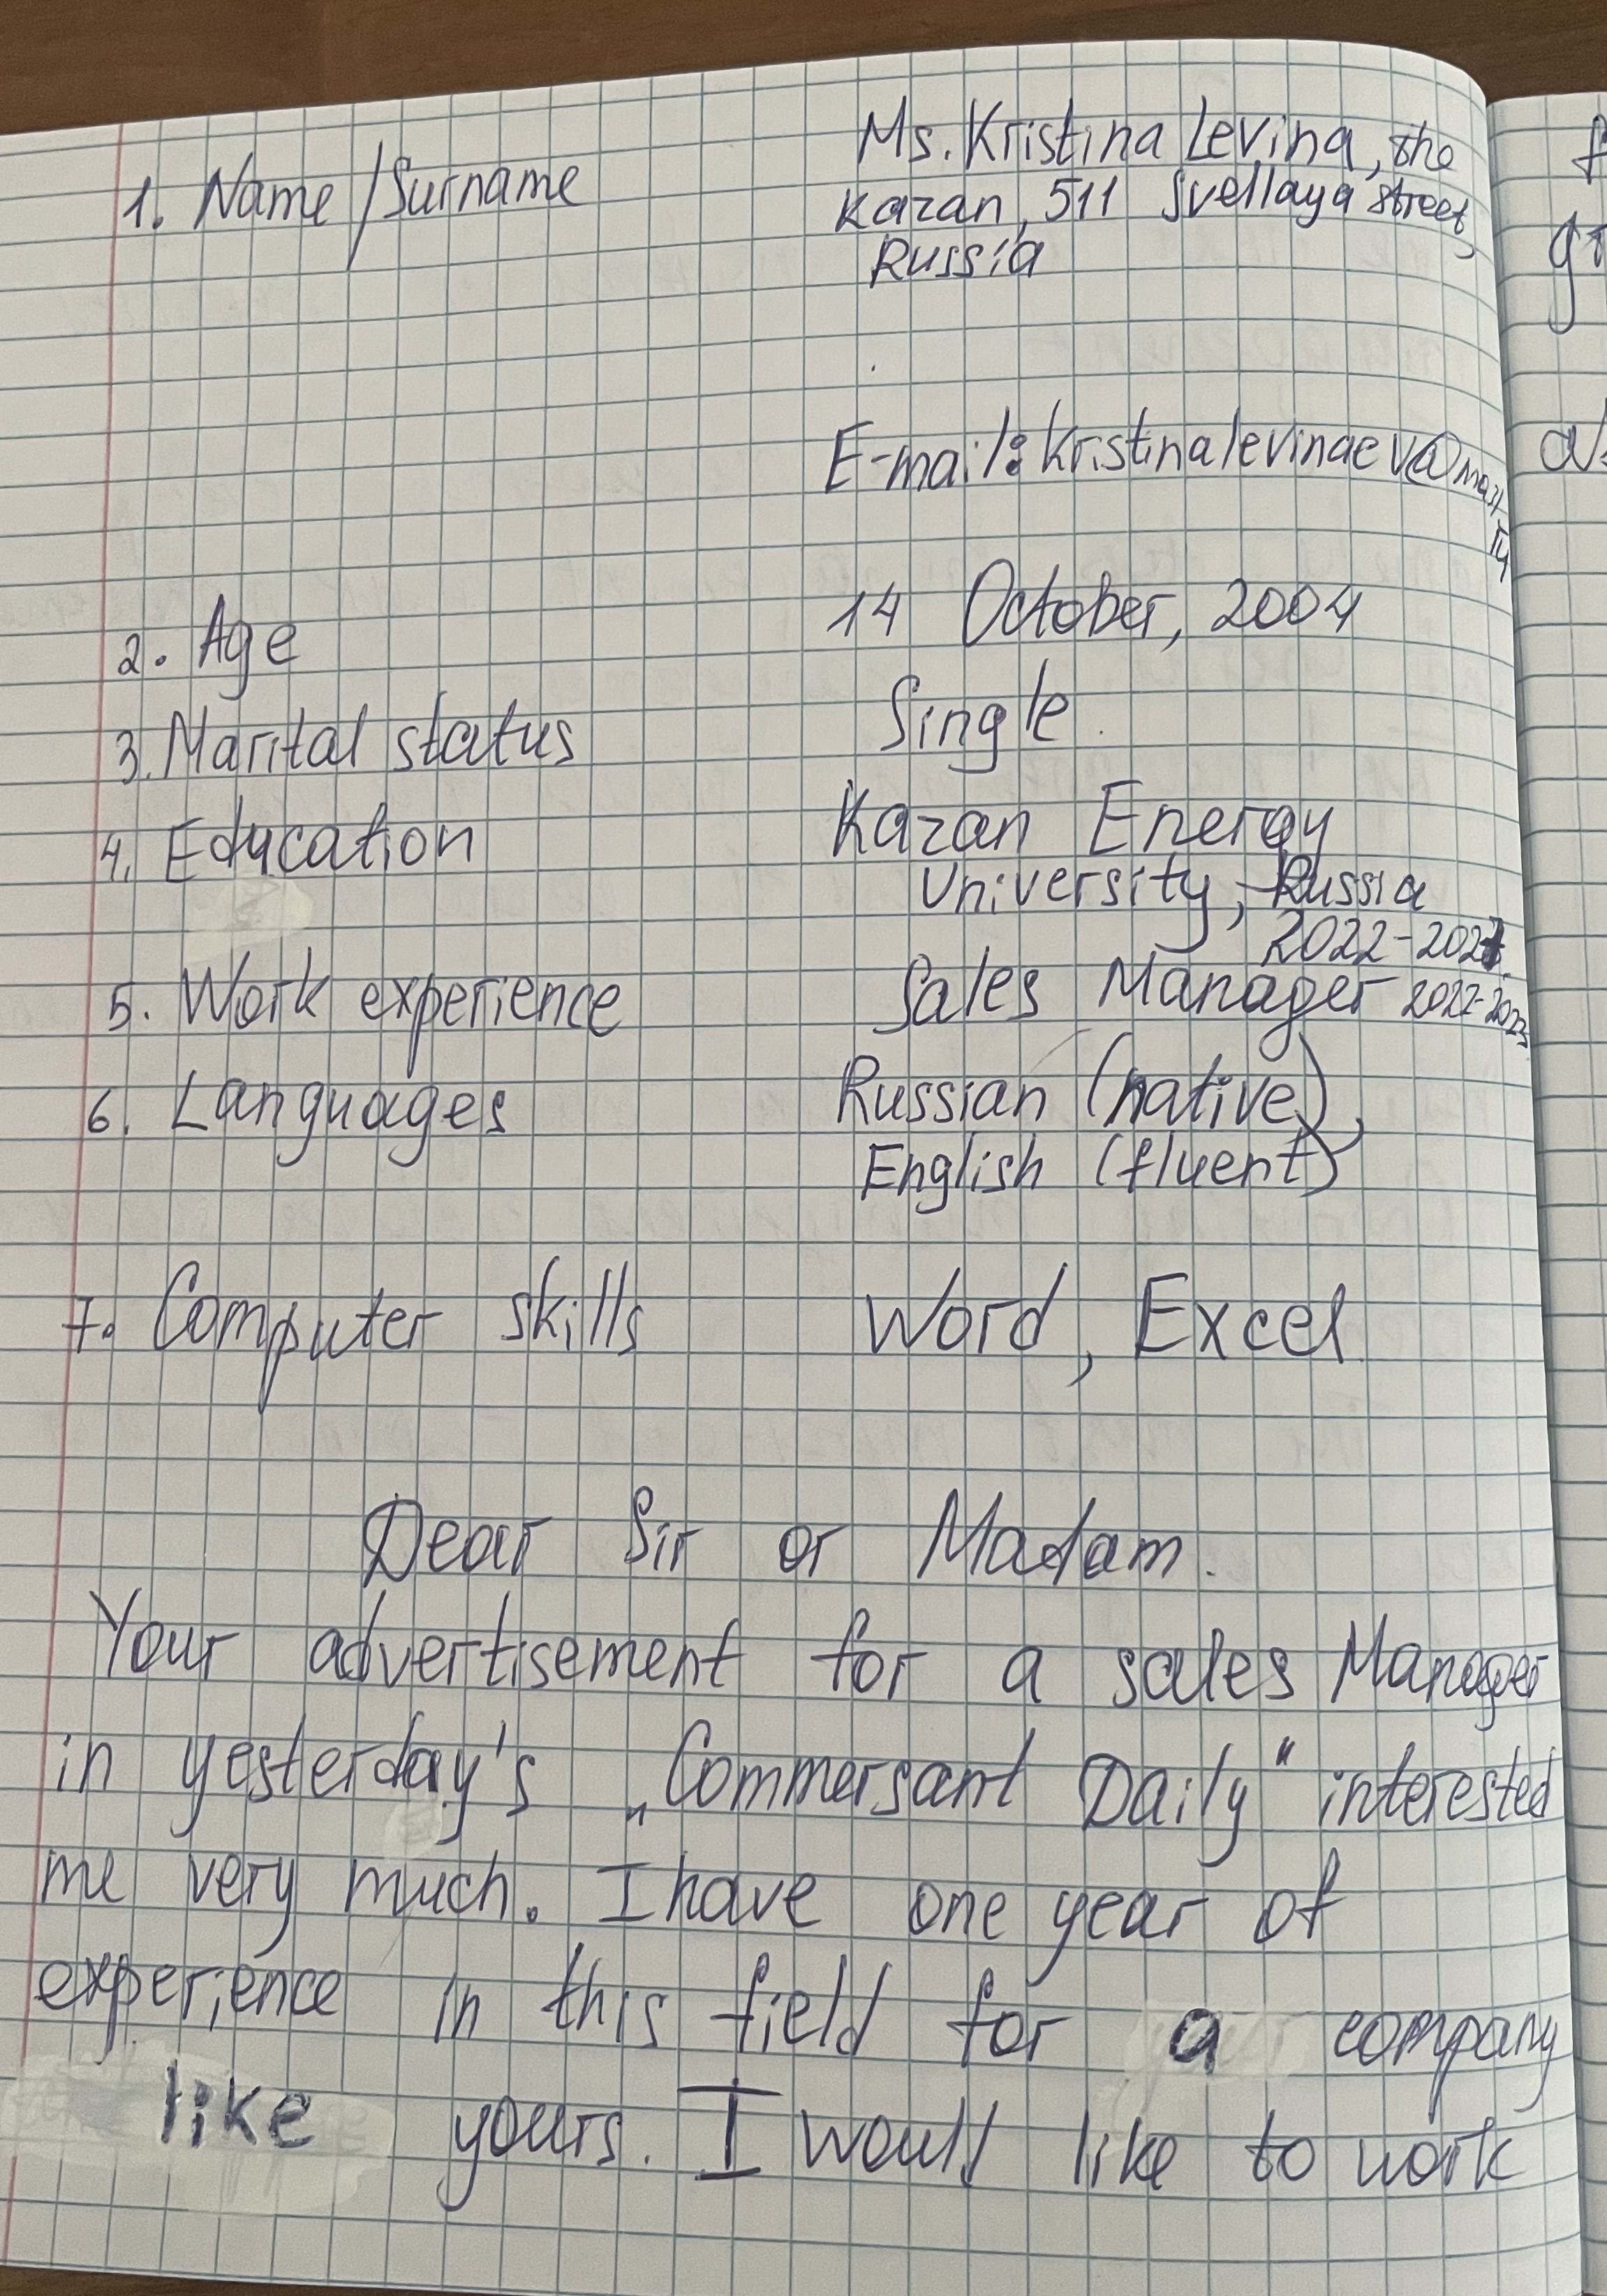 1. Name/Surname Ms. Kristina Levina, the
Kazan, 511 Svetlaya street,
Russia
E-mail: kristinalevinaev@mail.ru
2. Age 14 October, 2004
3. Marital status Single.
4. Education Kazan Energy
University, Russia
2022-2027.
5. Work experience Sales Manager 2022-2023
6. Languages Russian (native),
English (fluent)
7. Computer skills Word, Excel.
Dear Sir or Madam.
Your advertisement for a sales Manager
in yesterday's „Commersant Daily" interested
me very much. I have one year of
experience in this field for a company
like yours. I would like to work